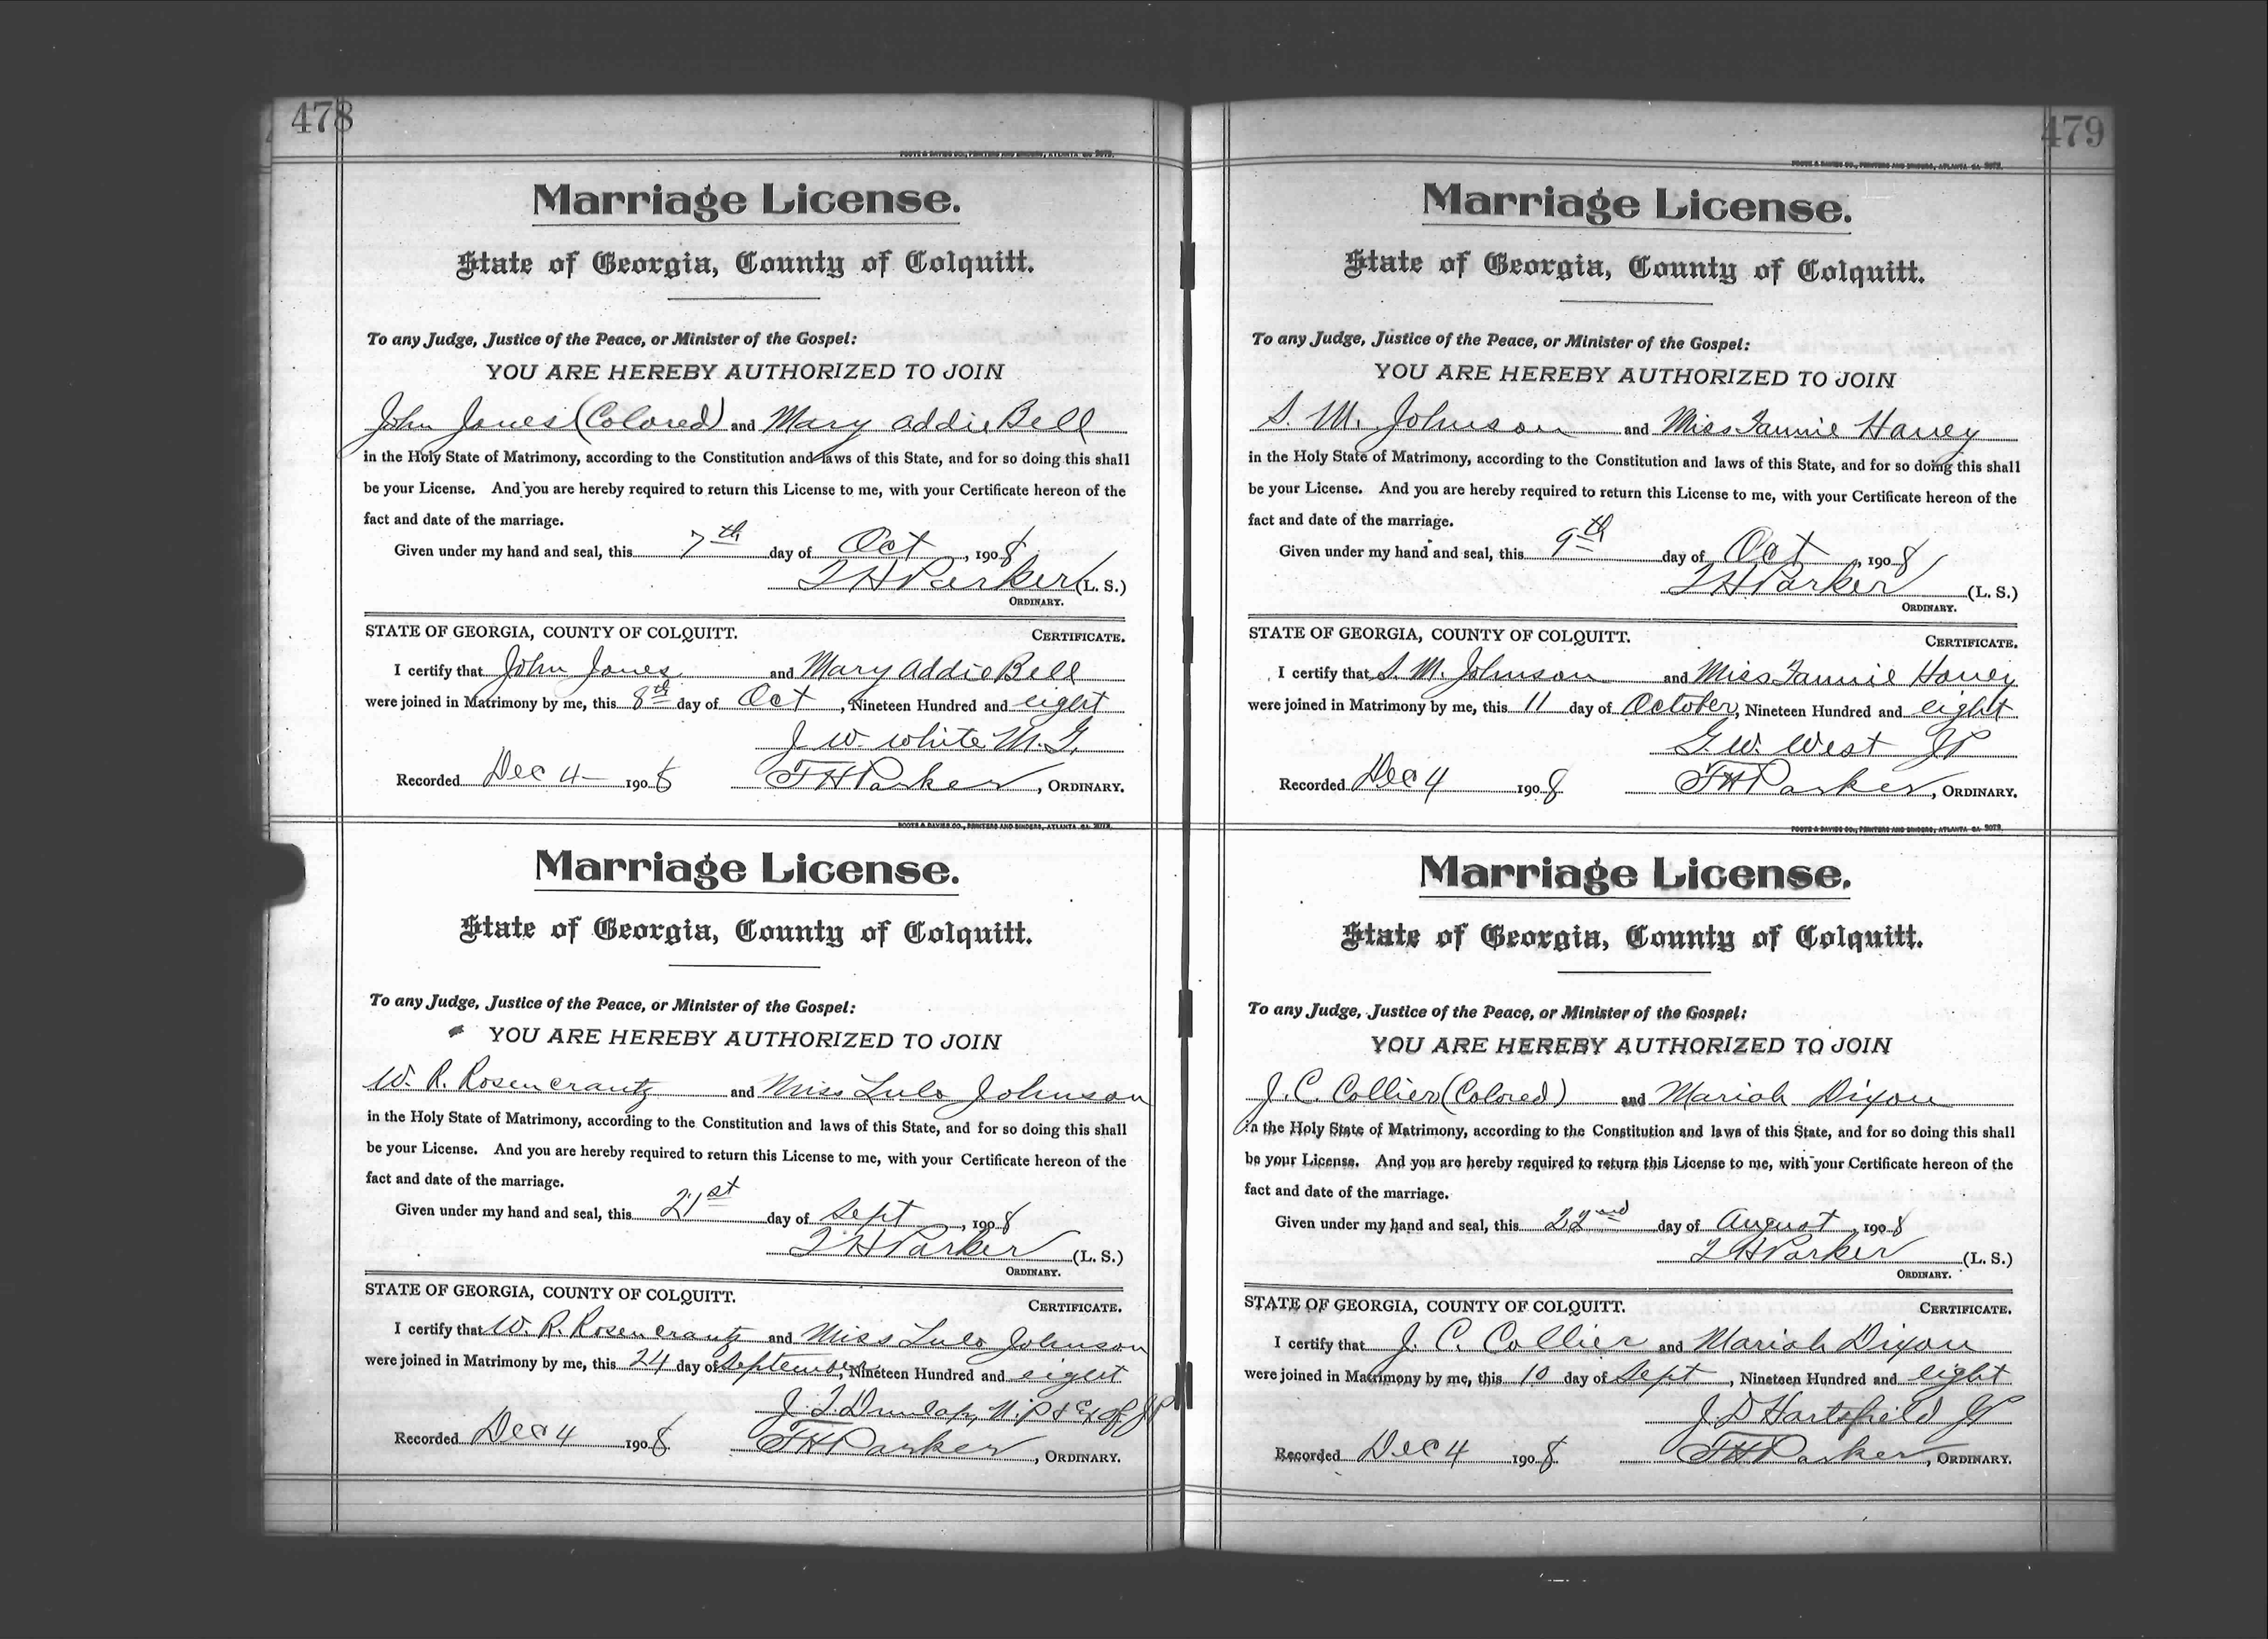 478
FOOTE & DAVIES CO., PRINTERS AND BINDERS, ATLANTA GA 3079.
Marriage License.
State of Georgia, County of Colquitt.
To any Judge, Justice of the Peace, or Minister of the Gospel:
YOU ARE HEREBY AUTHORIZED TO JOIN
John Jones (Colored) and Mary Addie Bell
in the Holy State of Matrimony, according to the Constitution and laws of this State, and for so doing this shall
be your License. And you are hereby required to return this License to me, with your Certificate hereon of the
fact and date of the marriage.
Given under my hand and seal, this 7th day of Oct, 1908
T H Parker (L. S.)
ORDINARY.
STATE OF GEORGIA, COUNTY OF COLQUITT. CERTIFICATE.
I certify that John Jones and Mary Addie Bell
were joined in Matrimony by me, this 8th day of Oct, Nineteen Hundred and eight
J W. White M. G.
Recorded Dec 4 1908 T H Parker, ORDINARY.
FOOTE & DAVIES CO., PRINTERS AND BINDERS, ATLANTA GA 3079.
Marriage License.
State of Georgia, County of Colquitt.
To any Judge, Justice of the Peace, or Minister of the Gospel:
YOU ARE HEREBY AUTHORIZED TO JOIN
W. R. Rosencrantz and Miss Lulo Johnson
in the Holy State of Matrimony, according to the Constitution and laws of this State, and for so doing this shall
be your License. And you are hereby required to return this License to me, with your Certificate hereon of the
fact and date of the marriage.
Given under my hand and seal, this 21st day of Sept, 1908
T H Parker (L. S.)
ORDINARY.
STATE OF GEORGIA, COUNTY OF COLQUITT. CERTIFICATE.
I certify that W. R. Rosencrantz and Miss Lulo Johnson
were joined in Matrimony by me, this 24 day of September, Nineteen Hundred and eight
J. T. Dunlap, N. P & Ex off JP
Recorded Dec 4 1908 T H Parker, ORDINARY.
479
FOOTE & DAVIES CO., PRINTERS AND BINDERS, ATLANTA GA 3079.
Marriage License.
State of Georgia, County of Colquitt.
To any Judge, Justice of the Peace, or Minister of the Gospel:
YOU ARE HEREBY AUTHORIZED TO JOIN
S. M. Johnson and Miss Fannie Haney
in the Holy State of Matrimony, according to the Constitution and laws of this State, and for so doing this shall
be your License. And you are hereby required to return this License to me, with your Certificate hereon of the
fact and date of the marriage.
Given under my hand and seal, this 9th day of Oct, 1908
T H Parker (L. S.)
ORDINARY.
STATE OF GEORGIA, COUNTY OF COLQUITT. CERTIFICATE.
I certify that S. M. Johnson and Miss Fannie Haney
were joined in Matrimony by me, this 11 day of October, Nineteen Hundred and eight
G. W. West JP
Recorded Dec 4 1908 T H Parker, ORDINARY.
FOOTE & DAVIES CO., PRINTERS AND BINDERS, ATLANTA GA 3079.
Marriage License.
State of Georgia, County of Colquitt.
To any Judge, Justice of the Peace, or Minister of the Gospel:
YOU ARE HEREBY AUTHORIZED TO JOIN
J. C. Collier (Colored) and Mariah Dixon
in the Holy State of Matrimony, according to the Constitution and laws of this State, and for so doing this shall
be your License. And you are hereby required to return this License to me, with your Certificate hereon of the
fact and date of the marriage.
Given under my hand and seal, this 22nd day of August, 1908
T H Parker (L. S.)
ORDINARY.
STATE OF GEORGIA, COUNTY OF COLQUITT. CERTIFICATE.
I certify that J. C. Collier and Mariah Dixon
were joined in Matrimony by me, this 10 day of Sept, Nineteen Hundred and eight
J. D Hartsfield JP
Recorded Dec 4 1908 T H Parker, ORDINARY.